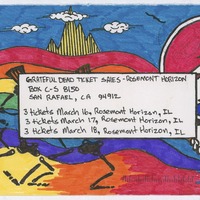 GRATEFUL DEAD TICKET SALES - ROSEMONT HORIZON
BOX C-S 8150
SAN RAFAEL, CA 94912
3 tickets March 16, Rosemont Horizon, IL
3 tickets March 17, Rosemont Horizon, IL
3 tickets March 18, Rosemont Horizon, IL